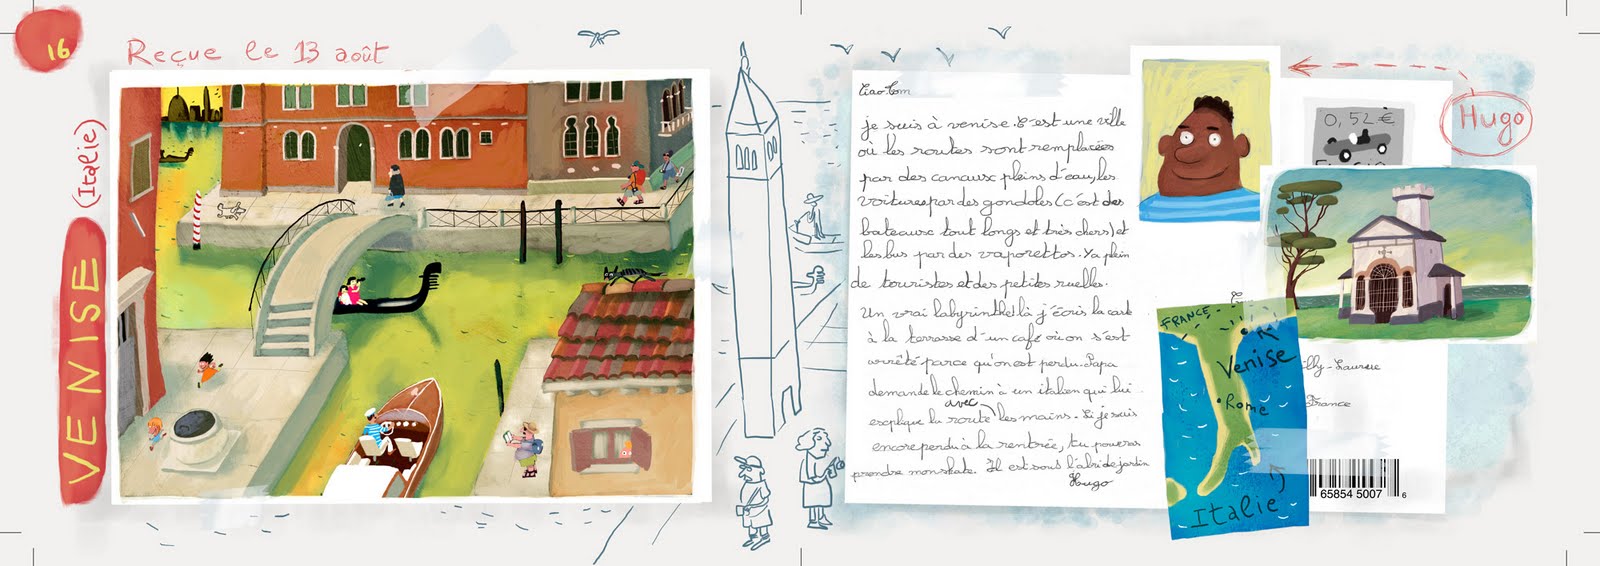 16
Reçue le 13 août
VENISE
(Italie)
Ciao Tom
je suis à venise. C'est une ville
où les routes sont remplacées
par des canaux pleins d'eau, les
voitures par des gondoles (c'est des
bateaux tout longs et très chers) et
les bus par des vaporettos. Y a plein
de touristes et des petites ruelles.
Un vrai labyrinthe! là j'écris la carte
à la terrasse d'un café où on s'est
arrêté parce qu'on est perdu. Papa
demande le chemin à un italien qui lui
explique la route avec les mains. Si je suis
encore perdu à la rentrée, tu pourras
prendre mon skate. Il est sous l'abri de jardin
Hugo
0,52 €
Hugo
FRANCE
Venise
Rome
Italie
illy-Laurue
France
65854 5007 6